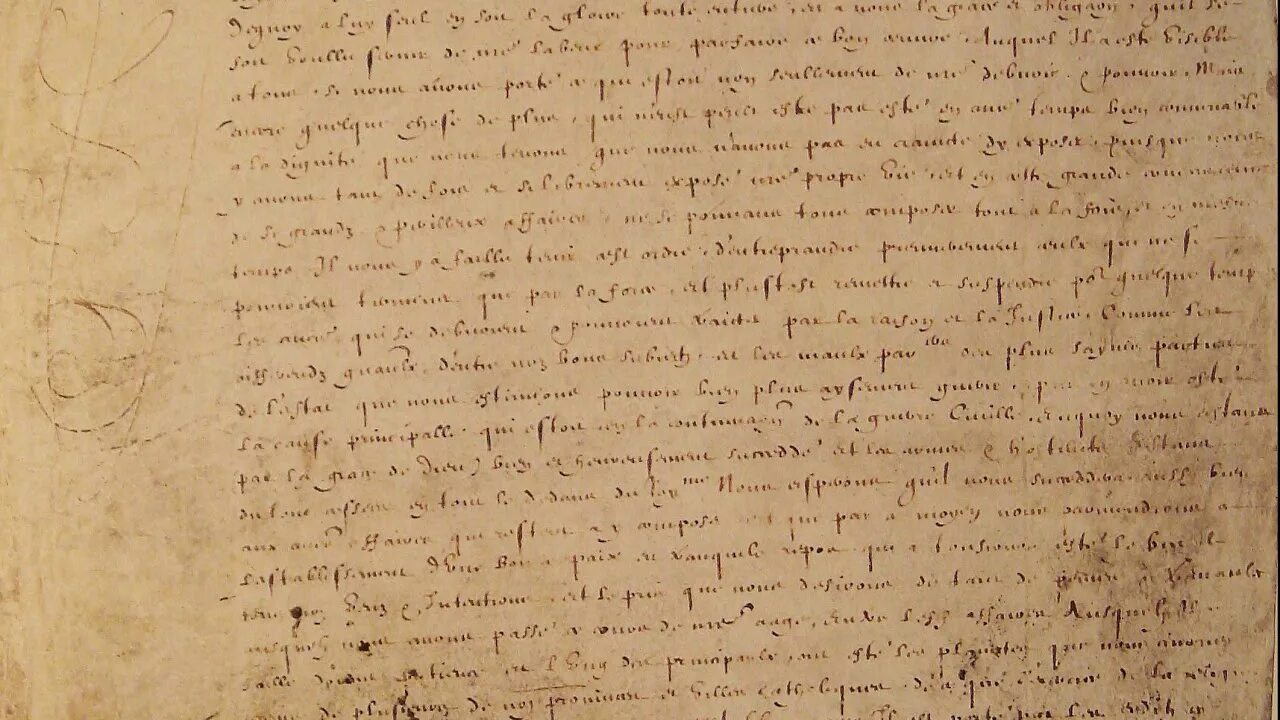 a luy seul en soit la gloire toute entiere, et a nous la grace et obligaõn, quil se
soit voullu servir de nre labeur pour parfaire ce bon œuvre. Auquel Il a esté visible
a tous, si nous avons porté ce qui estoit non seullement de nre debvoir, & pouvoir, Mais
encore quelque chose de plus, qui n'eust peult estre pas esté en autre temps bien convenable
a la dignité que nous tenons, que nous n'avons pas eu craincte dy exposer, puisque nous
y avons tant de fois et si librement exposé nre propre vie, Et en cette grande concurrence
de si grandz & perilleux affaires, ne se pouvans tous composer tout a la fois, et en mesme
temps, Il nous y a fallu tenir cest ordre, d'entreprandre premierement ceulx qui ne se
pouvoient terminer que par la force, et plustost remettre et suspendre por quelque temps
les autres, qui se debvoient & pouvoient traicter par la raison et la Justice, Comme les
differendz generaulx, d'entre noz bons subiectz, et les maulx parers des plus saynes parties
de l'estat que nous estimions pouvoir bien plus aysement guerir, apres en avoir osté
la cause principalle qui estoit en la continuaõn de la guerre Civille, en quoy nous estans
par la grace de Dieu, bien et heureusement succeddé, et les armes & hostilitez estans
du tout cessees en tout le dedans du Roy.me Nous esperons quil nous succeddera aussi bien
aux autres affaires qui restent a y composer, et que par ce moyen nous parviendrons a
l'establissement d'une bonne paix et tranquile repos qui a tousiours esté le but de
noz veuz & Intentions, et le prix que nous desirons de tant de peines & travaulx
ausquelz nous avons passé ce cours de nre aage, Entre lesd. affaires Ausquelz il a
fallu donner patience et l'Ung des principaulx, ont esté les plainctes que nous avons
de plusieurs de noz provinces et villes catholiques, de ce que l'exercice de la religion